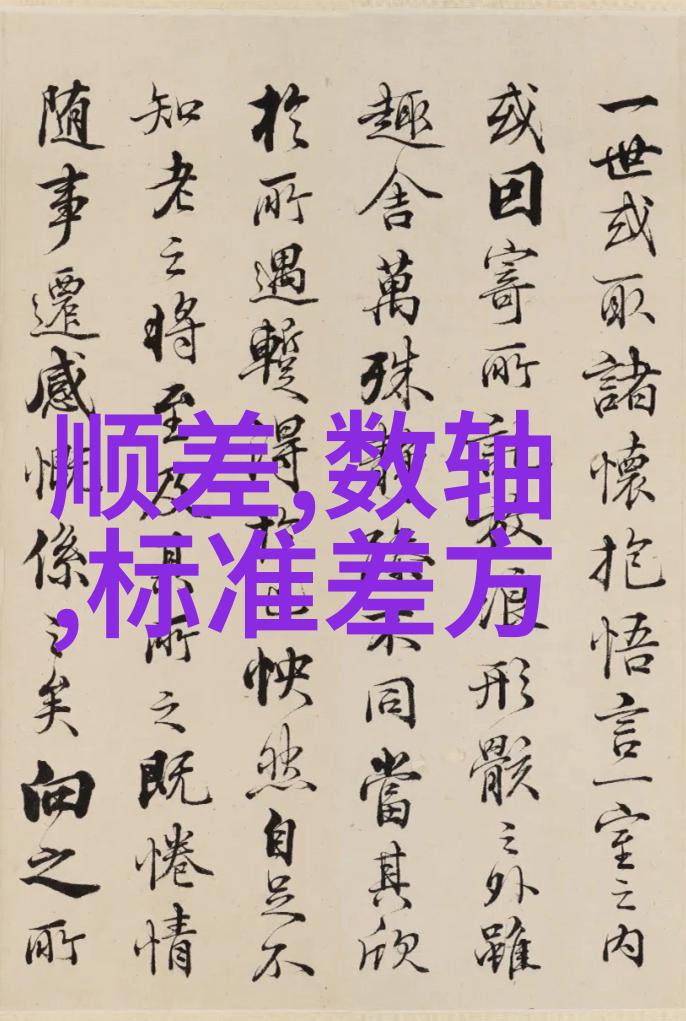 一世或取諸懷抱悟言一室之内
或因寄所託放浪形骸之外雖
趣舍萬殊静躁不同當其欣
於所遇蹔得於己怏然自足不
知老之將至及其所之既惓情
随事遷感慨係之矣向之所
顺差,数轴
,标准差方